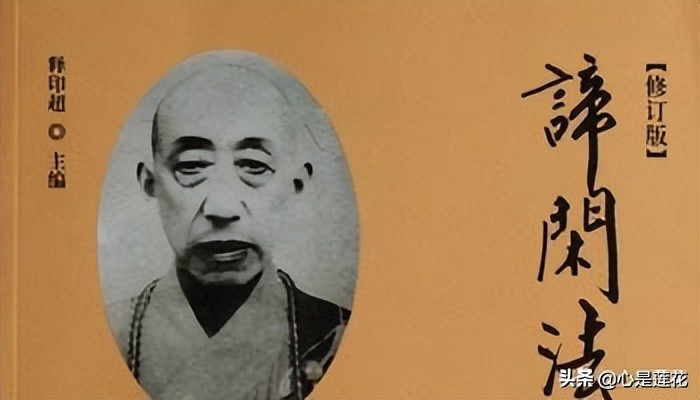 【修订版】
諦閑法
释印超 主编
头条 @心是莲花